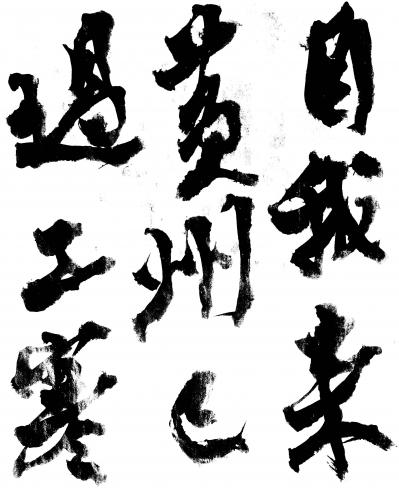 自我来
黄州已
過三寒